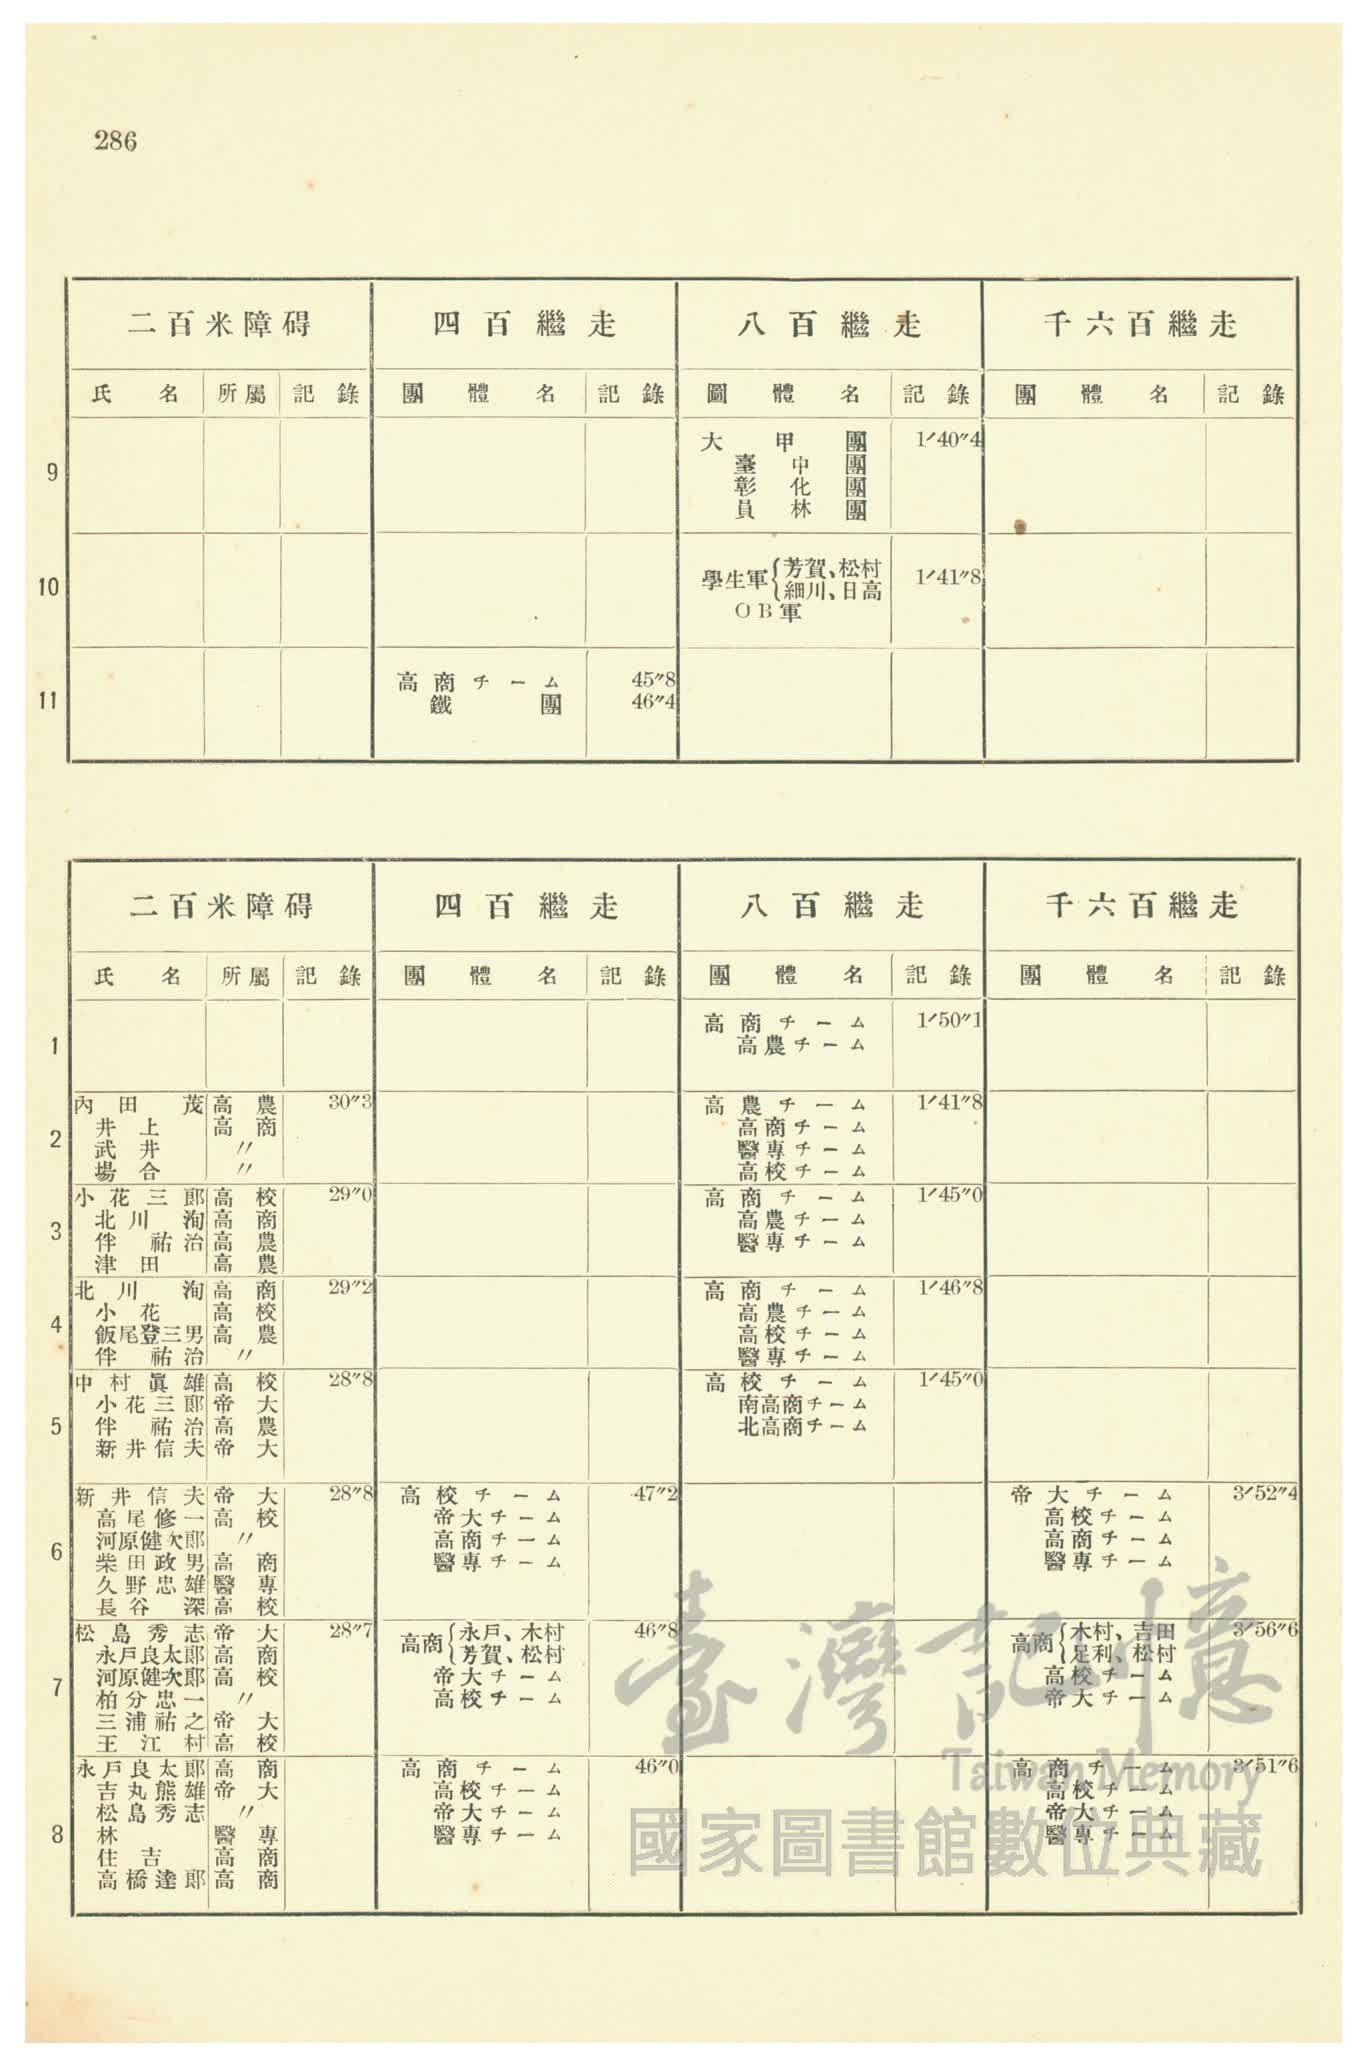 286
二百米障碍 四百繼走 八百繼走 千六百繼走
氏名 所屬 記錄 團體名 記錄 圖體名 記錄 團體名 記錄
9 大甲團 1′40″4
臺中團
彰化團
員林團
10 學生軍{芳賀、松村 細川、日高 1′41″8
OB軍
11 高商チーム 45″8
鐵團 46″4
二百米障碍 四百繼走 八百繼走 千六百繼走
氏名 所屬 記錄 團體名 記錄 團體名 記錄 團體名 記錄
1 高商チーム 1′50″1
高農チーム
2 內田茂 高農 30″3 高農チーム 1′41″8
井上 高商 高商チーム
武井 〃 醫專チーム
場合 〃 高校チーム
3 小花三郎 高校 29″0 高商チーム 1′45″0
北川洵 高商 高農チーム
伴祐治 高農 醫專チーム
津田 高農
4 北川洵 高商 29″2 高商チーム 1′46″8
小花 高校 高農チーム
飯尾登三男 高農 高校チーム
伴祐治 〃 醫專チーム
5 中村眞雄 高校 28″8 高校チーム 1′45″0
小花三郎 帝大 南高商チーム
伴祐治 高農 北高商チーム
新井信夫 帝大
6 新井信夫 帝大 28″8 高校チーム 47″2 帝大チーム 3′52″4
高尾修一 高校 帝大チーム 高校チーム
河原健次郎 〃 高商チーム 高商チーム
柴田政男 高商 醫專チーム 醫專チーム
久野忠雄 醫專
長谷深 高校
7 松島秀志 帝大 28″7 高商{永戶、木村 芳賀、松村 46″8 高商{木村、吉田 足利、松村 3′56″6
永戶良太郎 高商
河原健次郎 高校 帝大チーム 高校チーム
柏分忠一 〃 高校チーム 帝大チーム
三浦祐之 帝大
王江村 高校
8 永戶良太郎 高商 高商チーム 46″0 高商チーム 3′51″6
吉丸熊雄 帝大 高校チーム 高校チーム
松島秀志 〃 帝大チーム 帝大チーム
林 醫專 醫專チーム 醫專チーム
住吉 高商
高橋達郎 高商
臺灣記憶
Taiwan Memory
國家圖書館數位典藏